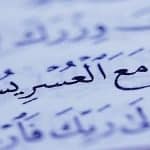 وِزْرَكَ
مَعَ ٱلْعُسْرِ يُسْ
رَبِّكَ فَٱرْ